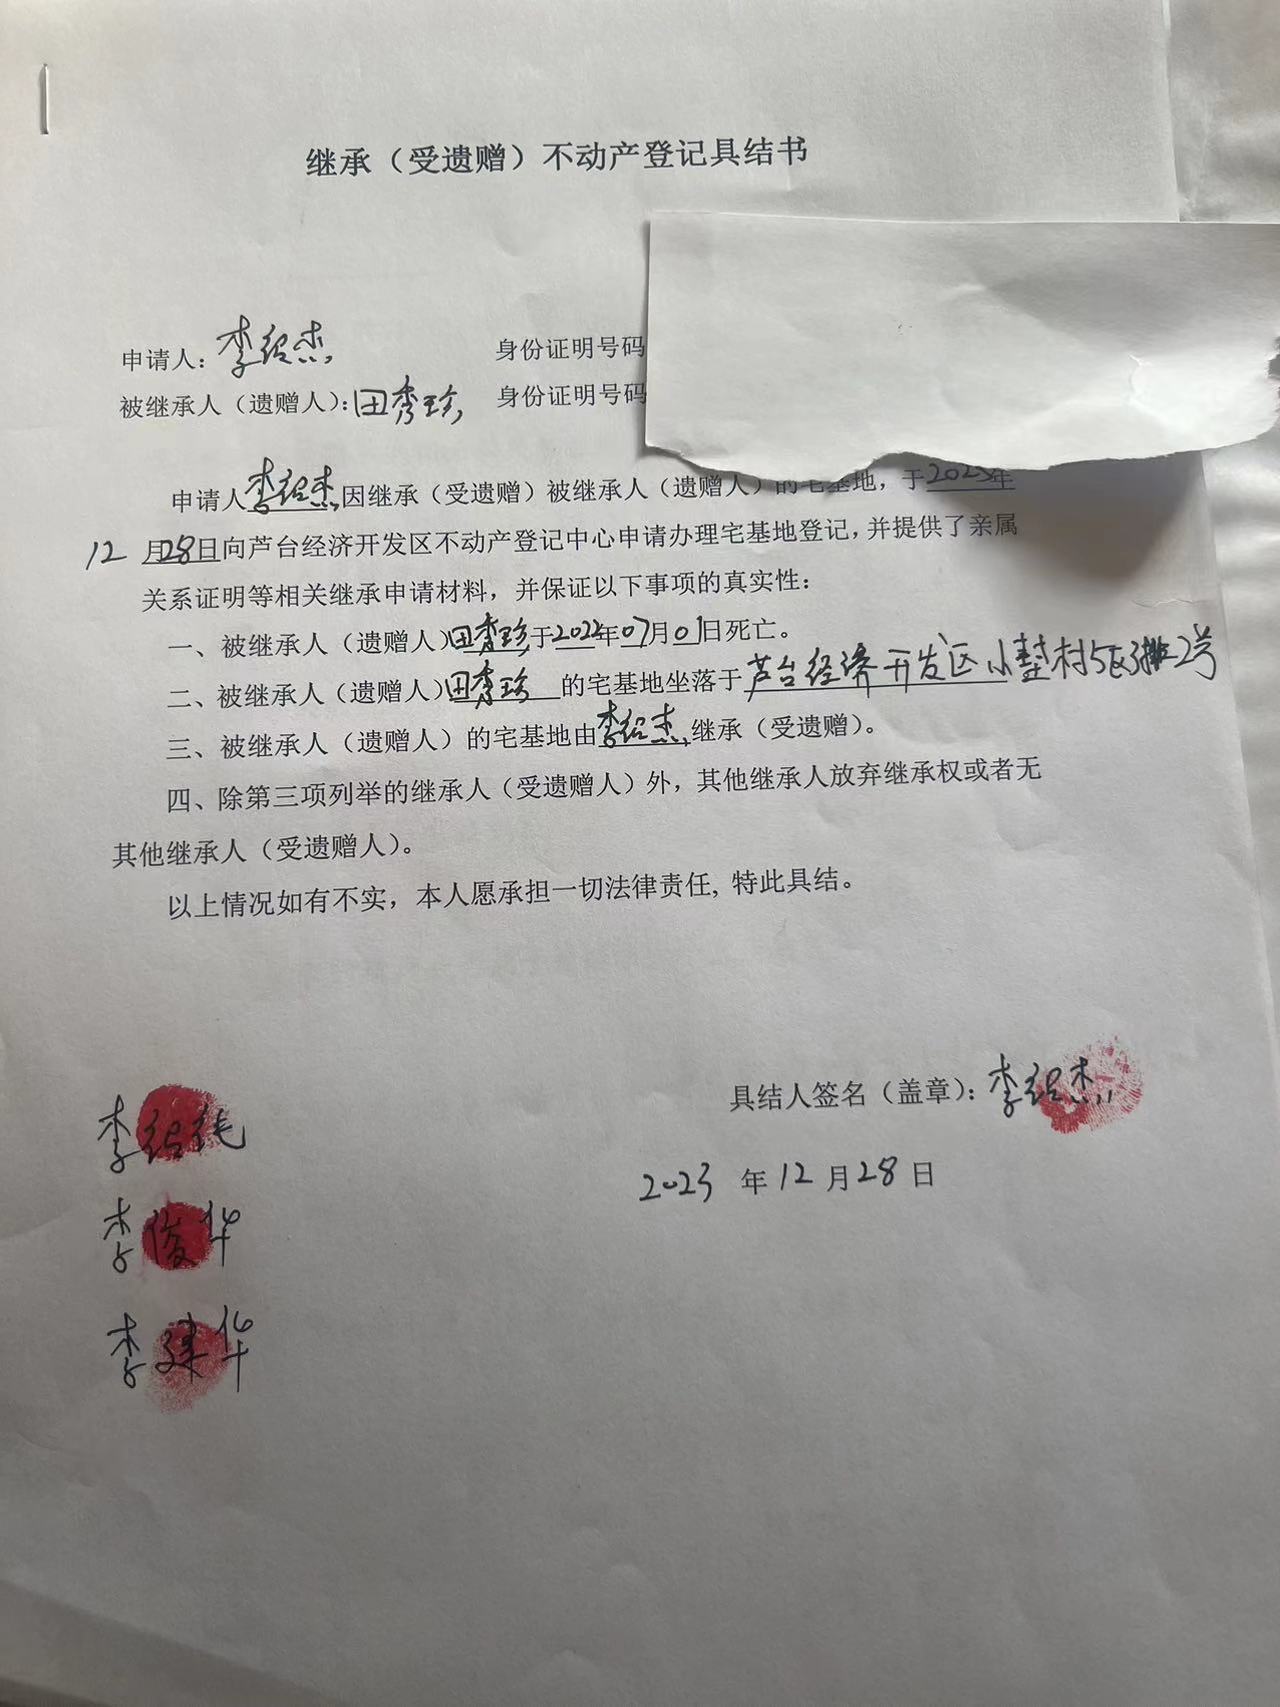 继承（受遗赠）不动产登记具结书
申请人：李绍杰 身份证明号码
被继承人（遗赠人）：田秀珍 身份证明号码
申请人李绍杰因继承（受遗赠）被继承人（遗赠人）的宅基地，于2023年
12月28日向芦台经济开发区不动产登记中心申请办理宅基地登记，并提供了亲属
关系证明等相关继承申请材料，并保证以下事项的真实性：
一、被继承人（遗赠人）田秀珍于2022年07月01日死亡。
二、被继承人（遗赠人）田秀珍的宅基地坐落于芦台经济开发区小 村5区3排2号
三、被继承人（遗赠人）的宅基地由李绍杰继承（受遗赠）。
四、除第三项列举的继承人（受遗赠人）外，其他继承人放弃继承权或者无
其他继承人（受遗赠人）。
以上情况如有不实，本人愿承担一切法律责任，特此具结。
具结人签名（盖章）：李绍杰
李绍纯
2023年12月28日
李俊华
李建华